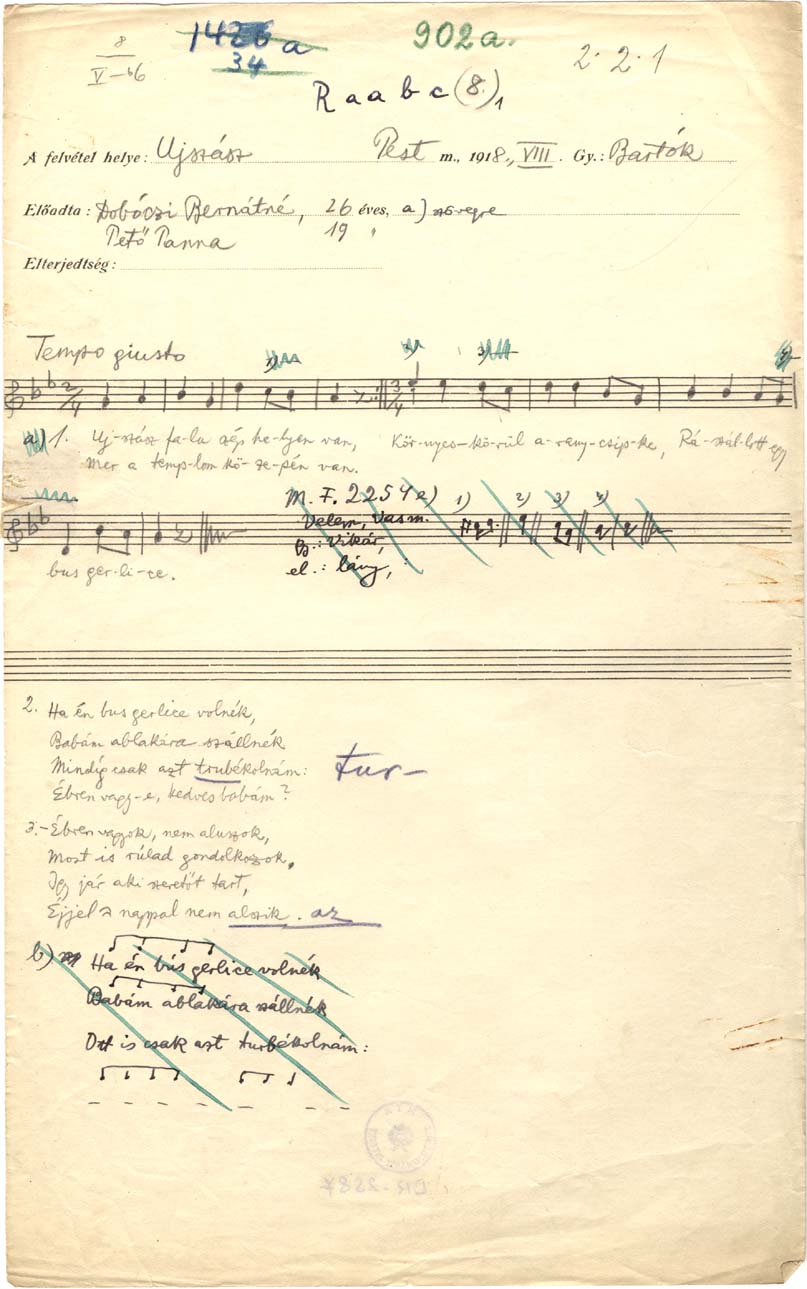 8
V–b6
1426 a
34
902a.
2. 2. 1
R a a b c (8.)1
A felvétel helye: Ujszász Pest m., 1918., VIII. Gy.: Bartók
Előadta: Dobóczi Bernátné, 26 éves, a) szövegre
Pető Panna 19 "
Elterjedtség:
Tempo giusto
1) 2) 3) 4)
a) 1. Uj-szász fa-lu szép he-lyen van, Kör-nyes-kö-rül a-rany-csip-ke, Rá-szál-lott egy
Mer a temp-lom kö-ze-pén van.
M. F. 2254e) 1) 2) 3) 4)
Velem, Vasm.
gy.: Vikár,
el.: lány,
bus ger-li-ce.
2. Ha én bus gerlice volnék,
Babám ablakára szállnék
Mindig csak azt trubékolnám: tur–
Ébren vagy-e, kedves babám?
3.–Ébren vagyok, nem aluszok,
Most is rúlad gondolkozok,
Igy jár aki szeretőt tart,
Éjjel s nappal nem alszik. az
b) Ha én bús gerlice volnék
Babám ablakára szállnék
Ott is csak azt turbékolnám: